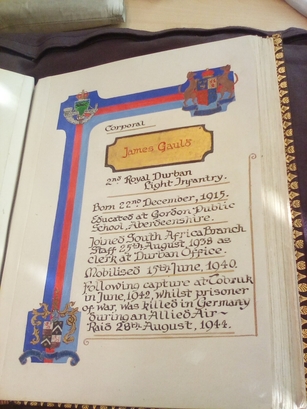 Corporal
James Gauld
2nd Royal Durban
Light Infantry.
Born 22nd December, 1915.
Educated at Gordon Public
School, Aberdeenshire.
Joined South Africa Branch
Staff 25th August, 1938 as
clerk at Durban Office.
Mobilised 15th June, 1940.
Following capture at Tobruk
in June, 1942, whilst prisoner
of war, was killed in Germany
during an Allied Air~
Raid 28th August, 1944.